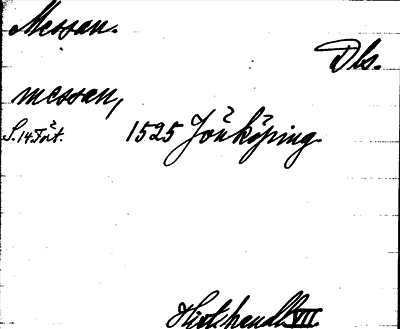 Messan.
Dls.
messan,
S. 14 Tört. 1525 Jönköping
Hist. handl. VII